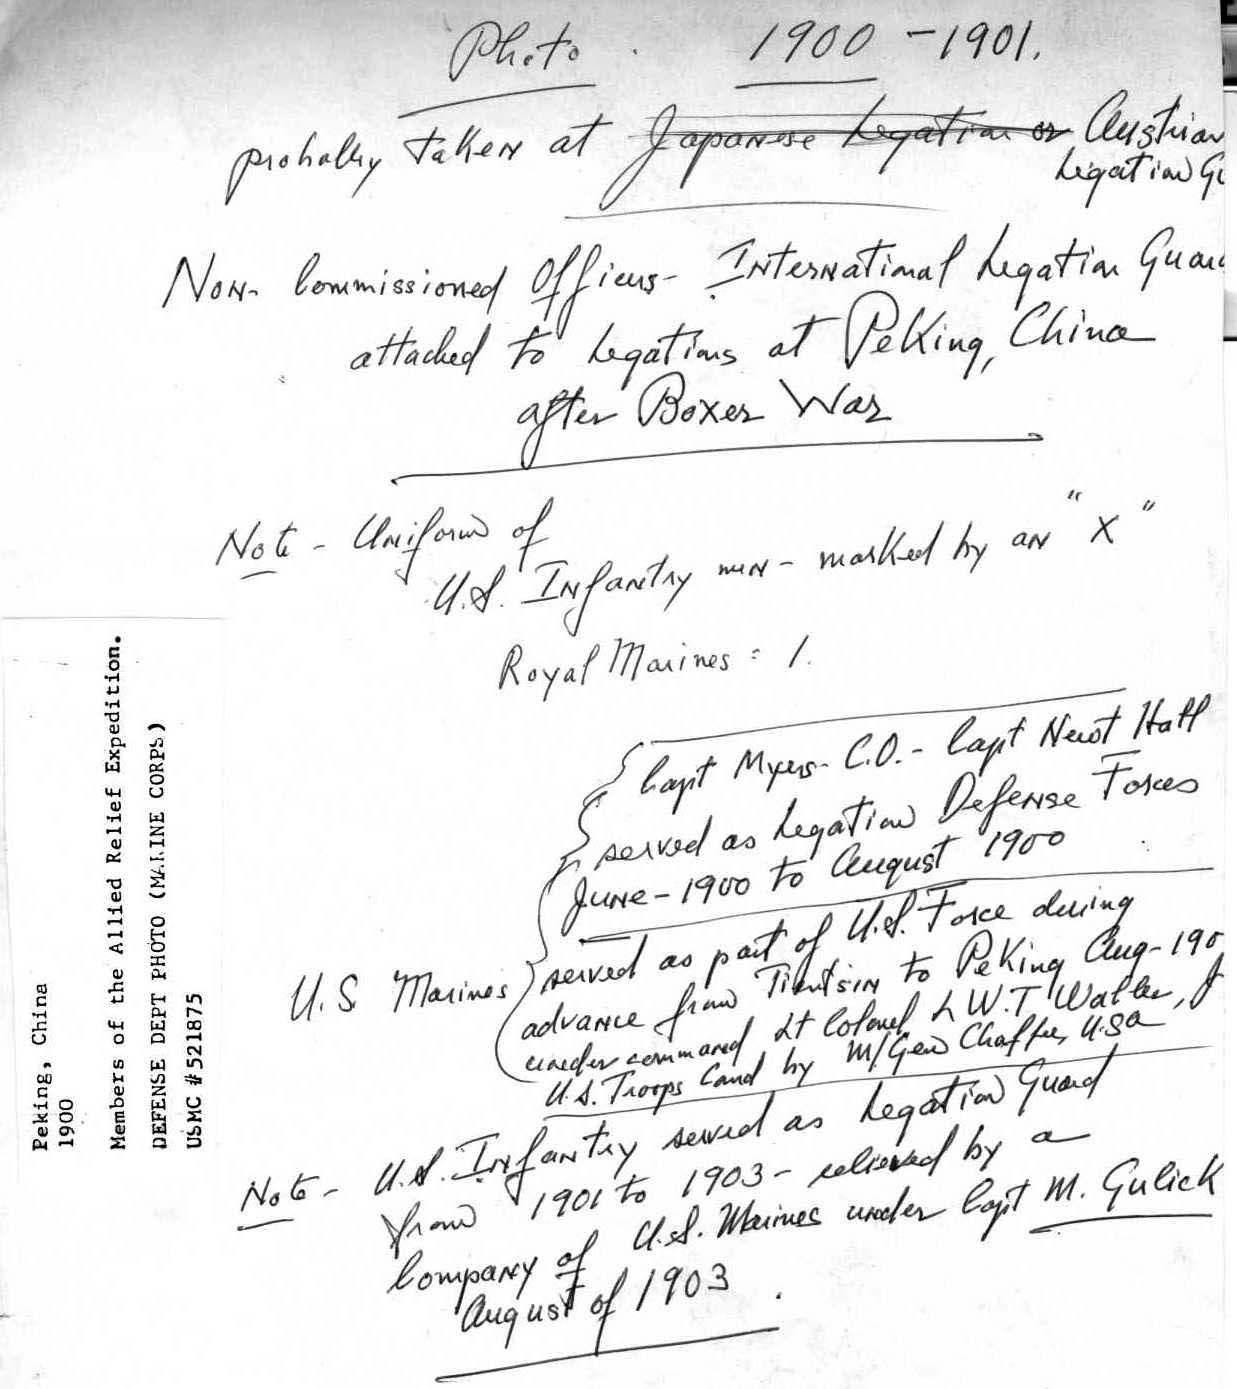 Photo . 1900 - 1901.
probably taken at Japanese Legation or Austrian
Legation
Non-Commissioned Officers - International Legation
attached to Legations at Peking, China
after Boxer War
Note - Uniform of
U.S. Infantry men - marked by an "X"
Royal Marines = 1.
Capt Myers - C.O. - Capt Newt Hall
served as Legation Defense Forces
June - 1900 to August 1900
U.S Marines
served as part of U.S. Force during
advance from Tientsin to Peking Aug-190
under command Lt Colonel L W.T Waller, J
U.S. Troops Comd by M/Gen Chaffee, U.S.A
Note - U.S. Infantry served as Legation Guard
from 1901 to 1903 - relieved by a
Company of U.S. Marines under Capt M. Gulick
August of 1903.
Peking, China
1900
Members of the Allied Relief Expedition.
DEFENSE DEPT PHOTO (MARINE CORPS)
USMC #521875